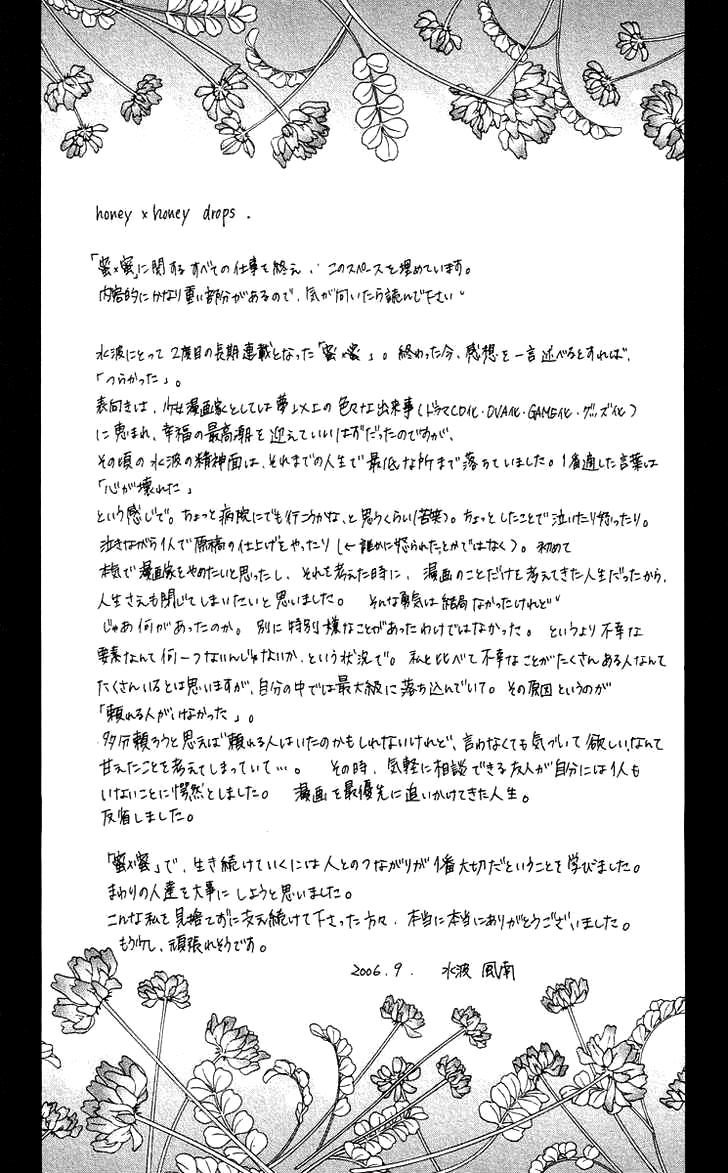 honey × honey drops .
「蜜×蜜」に関するすべての仕事を終え、このスペースを埋めています。
内容的にかなり重い部分があるので、気が向いたら読んで下さい
水波にとって2度目の長期連載となった「蜜×蜜」。終わった今、感想を一言述べるとすれば、
「つらかった」。
表向きは、少女漫画家としては夢以上の色々な出来事(ドラマCD化・OVA化・GAME化・グッズ化)
に恵まれ、幸福の最高潮を迎えていいはずだったのですが、
その頃の水波の精神面は、それまでの人生で最低な所まで落ちていました。1番適した言葉は
「心が壊れた」
という感じで。ちょっと病院にでも行こうかな、と思うくらい(苦笑)。ちょっとしたことで泣いたり怒ったり。
泣きながら1人で原稿の仕上げをやったり(←誰かに怒られたとかではなく)。初めて
本気で漫画家をやめたいと思ったし、それを考えた時に、漫画のことだけを考えてきた人生だったから、
人生さえも閉じてしまいたいと思いました。そんな勇気は結局なかったけれど
じゃあ何があったのか。別に特別嫌なことがあったわけではなかった。というより不幸な
要素なんて何一つないんじゃないか、という状況で。私と比べて不幸なことがたくさんある人なんて
たくさんいるとは思いますが、自分の中では最大級に落ち込んでいて。その原因というのが
「頼れる人がいなかった」。
多分頼ろうと思えば頼れる人はいたのかもしれないけれど、言わなくても気づいて欲しい、なんて
甘えたことを考えてしまっていて…。その時、気軽に相談できる友人が自分には1人も
いないことに愕然としました。漫画を最優先に追いかけてきた人生。
反省しました。
「蜜×蜜」で、生き続けていくには人とのつながりが1番大切だということを学びました。
まわりの人達を大事にしようと思いました。
こんな私を見捨てずに支え続けて下さった方々、本当に本当にありがとうございました。
もう少し、頑張れそうです。
2006.9. 水波 風南